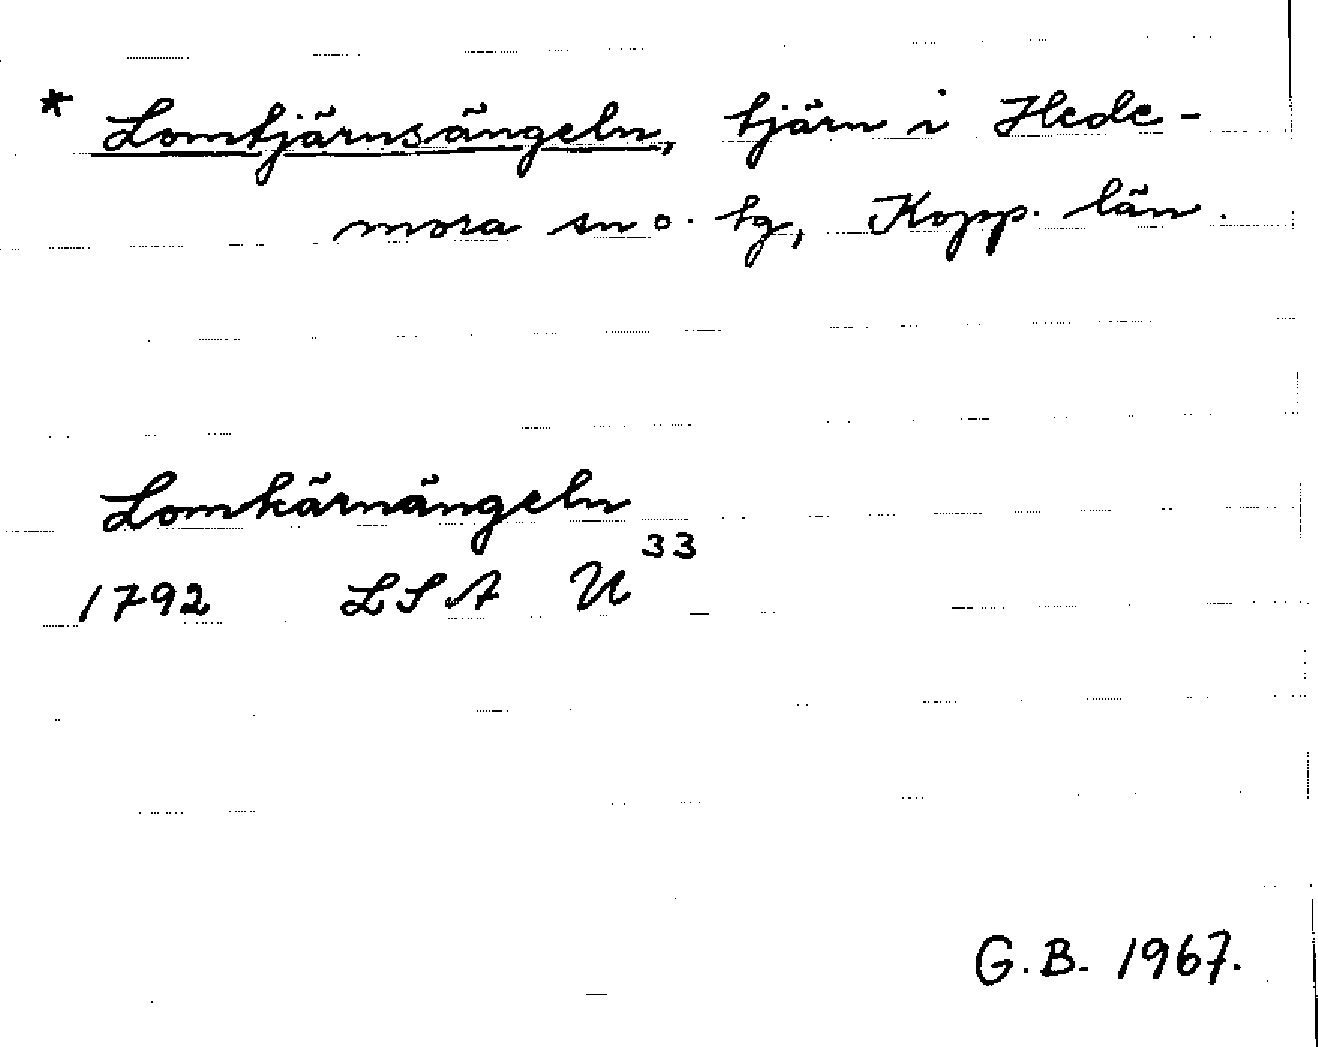 * Lomtjärnsängeln, tjärn i Hede-
mora sn o. tg, Kopp. län.
Lomkärnängeln
1792 LSA U³³
G.B. 1967.